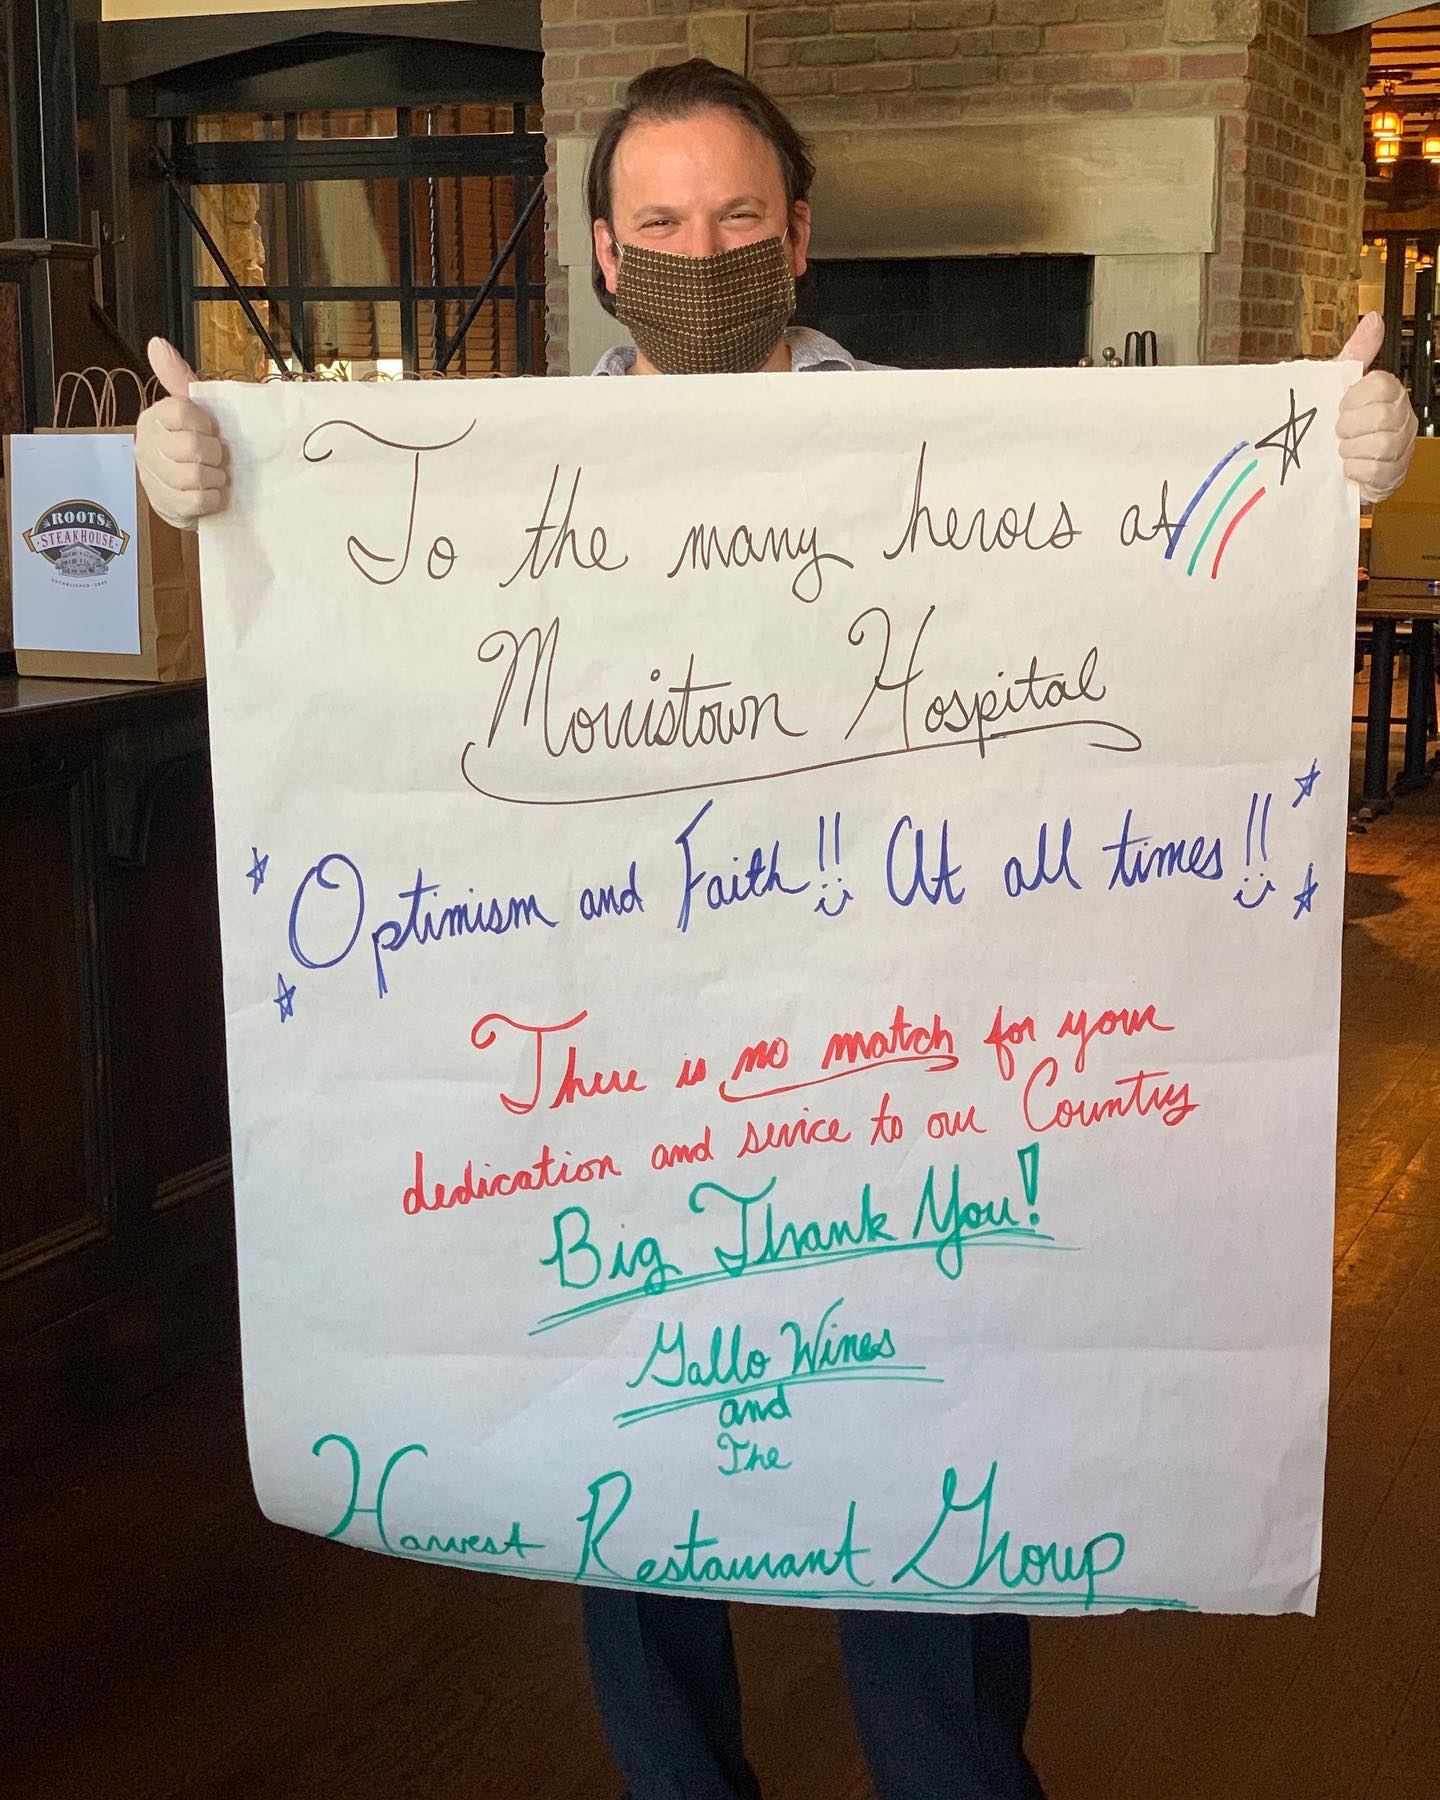 ROOTS
STEAKHOUSE
To the many heroes at
Morristown Hospital
Optimism and Faith!! At all times!!
There is no match for your
dedication and service to our Country
Big Thank You!
Gallo Wines
and
The
Harvest Restaurant Group